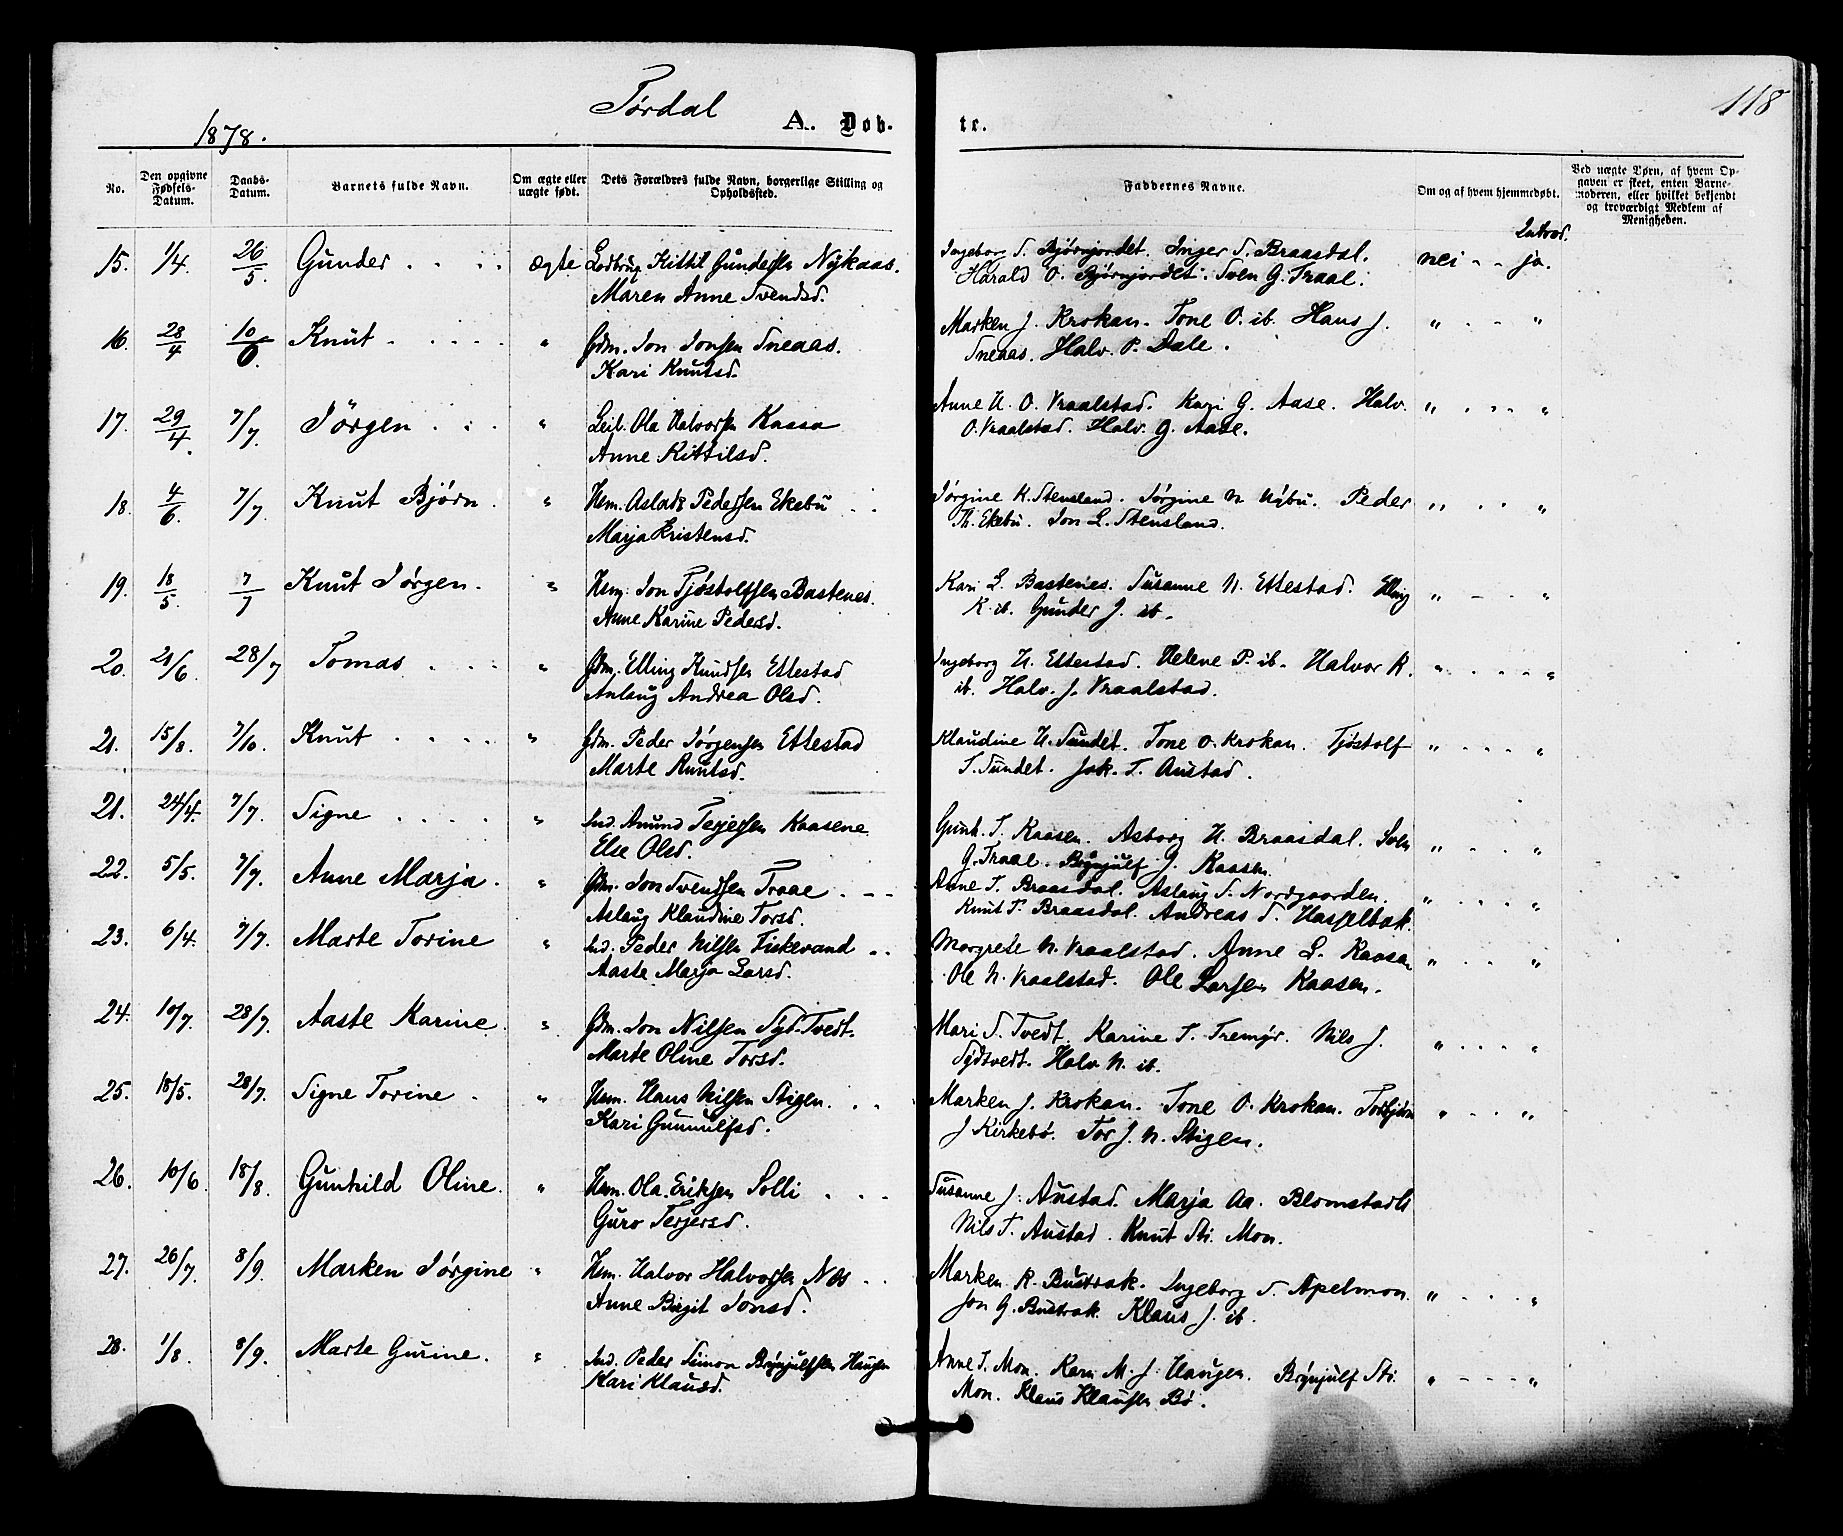 Tørdal
118
1878.
A. Dob-
te.
No.
Den opgivne Fødsels-Datum.
Daabs-Datum.
Barnets fulde Navn.
Om ægte eller uægte født.
Dets Forældres fulde Navn, borgerlige Stilling og Opholdssted.
Faddernes Navne.
Om og af hvem hjemmedøbt.
Ved uægte Børn, af hvem Opgaven er skeet, enten Barnemoderen, eller hvilket bekjendt og troværdigt Medlem af Menigheden.
Introd.
15. 1/4. 26/5. Gunder . . . . ægte Kittil Gundersen Nykaas. Ingeborg S. Bjørnjordet. Inger S. Braasdal. nei - - ja.
Maren Anne Svendsd. Harald O. Bjørnjordet. Sven G. Traal.
16. 28/4 10/6. Knut . . . . . " Gdm. Jon Jonsen Sneaas. Marken J. Krokan. Tone O. ib. Hans J. " . - - "
Kari Knutsd. Sneaas. Halv. P. Dale.
17. 29/4. 7/7. Jørgen . . . " Leil. Ola Halvorsen Kaasa Anne H. O. Vraalstad. Kari G. Aase. Halv. " . . . "
Anne Kittilsd. O. Vraalstad. Halv. G. Aase.
18. 4/6. 7/7. Knut Bjørn . " Hem. Aslak Pedersen Ekebu . . Jørgine K. Stensland. Jørgine N. Nybu. Peder " . . . "
Marja Kristensd. Th. Ekebu. Jon L. Stensland.
19. 18/5. 7/7 Knut Jørgen . " Hem. Jon Tjøstolfsen Bastenes. Kari L. Bastenes. Susanne N. Ettestad. Elling " - . "
Anne Karine Pedersd. K. ib. Gunder J. ib.
20. 21/6. 28/7 Tomas . . . " Gdm. Elling Knudsen Ettestad Ingeborg H. Ettestad. Helene P. ib. Halvor K. " . . . . "
Anlaug Andrea Olsd. ib. Halv. J. Vraalstad.
21. 15/8. 7/10. Knut . . . . " Gdm. Peder Jørgensen Ettestad Klaudine H. Sundet. Tone O. Krokan. Tjøstolf " . . . "
Marte Knutsd. T. Sundet. Jak. T. Austad.
21. 24/4. 7/7. Signe . . . . " Ind. Anund Terjesen Kaasene Gunh. T. Kaasen. Asborg H. Braasdal. Sven " . . "
Else Olsd. G. Traae. Brynjulf J. Kaasen.
22. 5/5. 7/7. Anne Marja . " Gdm. Jon Svendsen Traae . . . Anne T. Braasdal. Aslaug S. Nordgaarden. " . . . "
Aslaug Klaudine Torsd. Knut T. Braasdal. Andreas S. Hasselbak.
23. 6/4. 7/7. Marte Torine " Ind. Peder Nilsen Fiskevand . . Margrete N. Vraalstad. Anne L. Kaasen " . . "
Aaste Marja Larsd. Ole N. Vraalstad. Ole Larsen Kaasen.
24. 10/7. 28/7. Aaste Karine . " Gdm. Jon Nilsen Syd-Tvedt. Mari S. Tvedt. Karine T. Tremyr. Nils J. " . . . "
Marte Oline Torsd. Sydtvedt. Halv. N. ib.
25. 18/5. 28/7. Signe Torine . " Hem. Hans Nilsen Stigen . . . Marken J. Krokan. Tone O. Krokan. Torbjørn " . . "
Kari Gunnulfsd. J. Kirkebø. Tor J. N. Stigen.
26. 10/6. 18/8. Gunhild Oline . " Hem. Ola Eriksen Solli . . . Susanne J. Austad. Marja Aa. Blomstadli
Guro Terjersd. Nils T. Austad. Knut St. Mon.
27. 26/7. 8/9. Marken Jørgine " Hem. Halvor Halvorsen Nes . . Marken K. Bustrak. Ingeborg S. Apelmon. " . . . "
Anne Birgit Jonsd. Jon G. Bustrak. Klaus J. ib.
28. 1/8. 8/9. Marte Gurine . " Ind. Peder Simon Brynjulfsen Haugen Anne T. Mon. Karen M. J. Haugen. Brynjulf St. " - - - "
Kari Klausd. Mon. Klaus Klausen Bø.